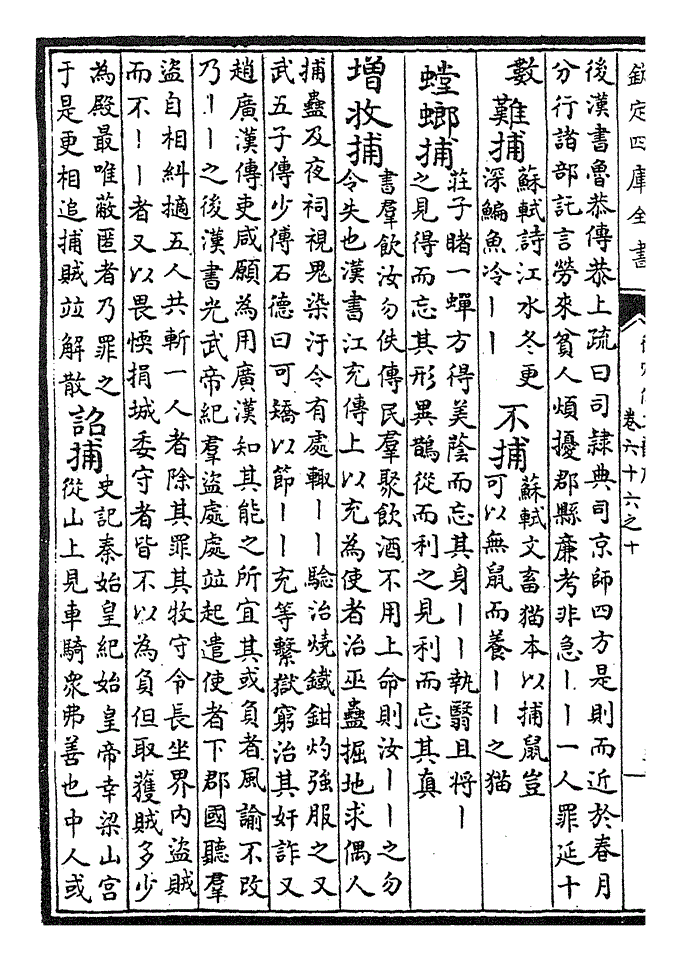 欽定四庫全書
卷六十六之十
後漢書魯恭傳恭上疏曰司隸典司京師四方是則而近於春月
分行諸部託言勞來貧人煩擾郡縣廉考非急丨丨一人罪延十
數
難捕
蘇軾詩江水冬更
深鳊魚冷丨丨
不捕
蘇軾文畜猫本以捕鼠豈
可以無鼠而養丨丨之猫
螳螂捕
莊子睹一蟬方得美蔭而忘其身丨丨執翳且將丨
之見得而忘其形異鵲從而利之見利而忘其真
増收捕
書羣飲汝勿佚傳民羣聚飲酒不用上命則汝丨丨之勿
令失也漢書江充傳上以充為使者治巫蠱掘地求偶人
捕蠱及夜祠視鬼染汙令有處輒丨丨驗治燒鐵鉗灼強服之又
武五子傳少傅石德曰可矯以節丨丨充等繫獄窮治其奸詐又
趙廣漢傳吏咸願為用廣漢知其能之所宜其或負者風諭不改
乃丨丨之後漢書光武帝紀羣盜處處竝起遣使者下郡國聽羣
盜自相糾擿五人共斬一人者除其罪其牧守令長坐界内盜賊
而不丨丨者又以畏愞捐城委守者皆不以為負但取獲賊多少
為殿最唯蔽匿者乃罪之
于是更相追捕賊竝解散
詔捕
史記秦始皇紀始皇帝幸梁山宮
從山上見車騎衆弗善也中人或